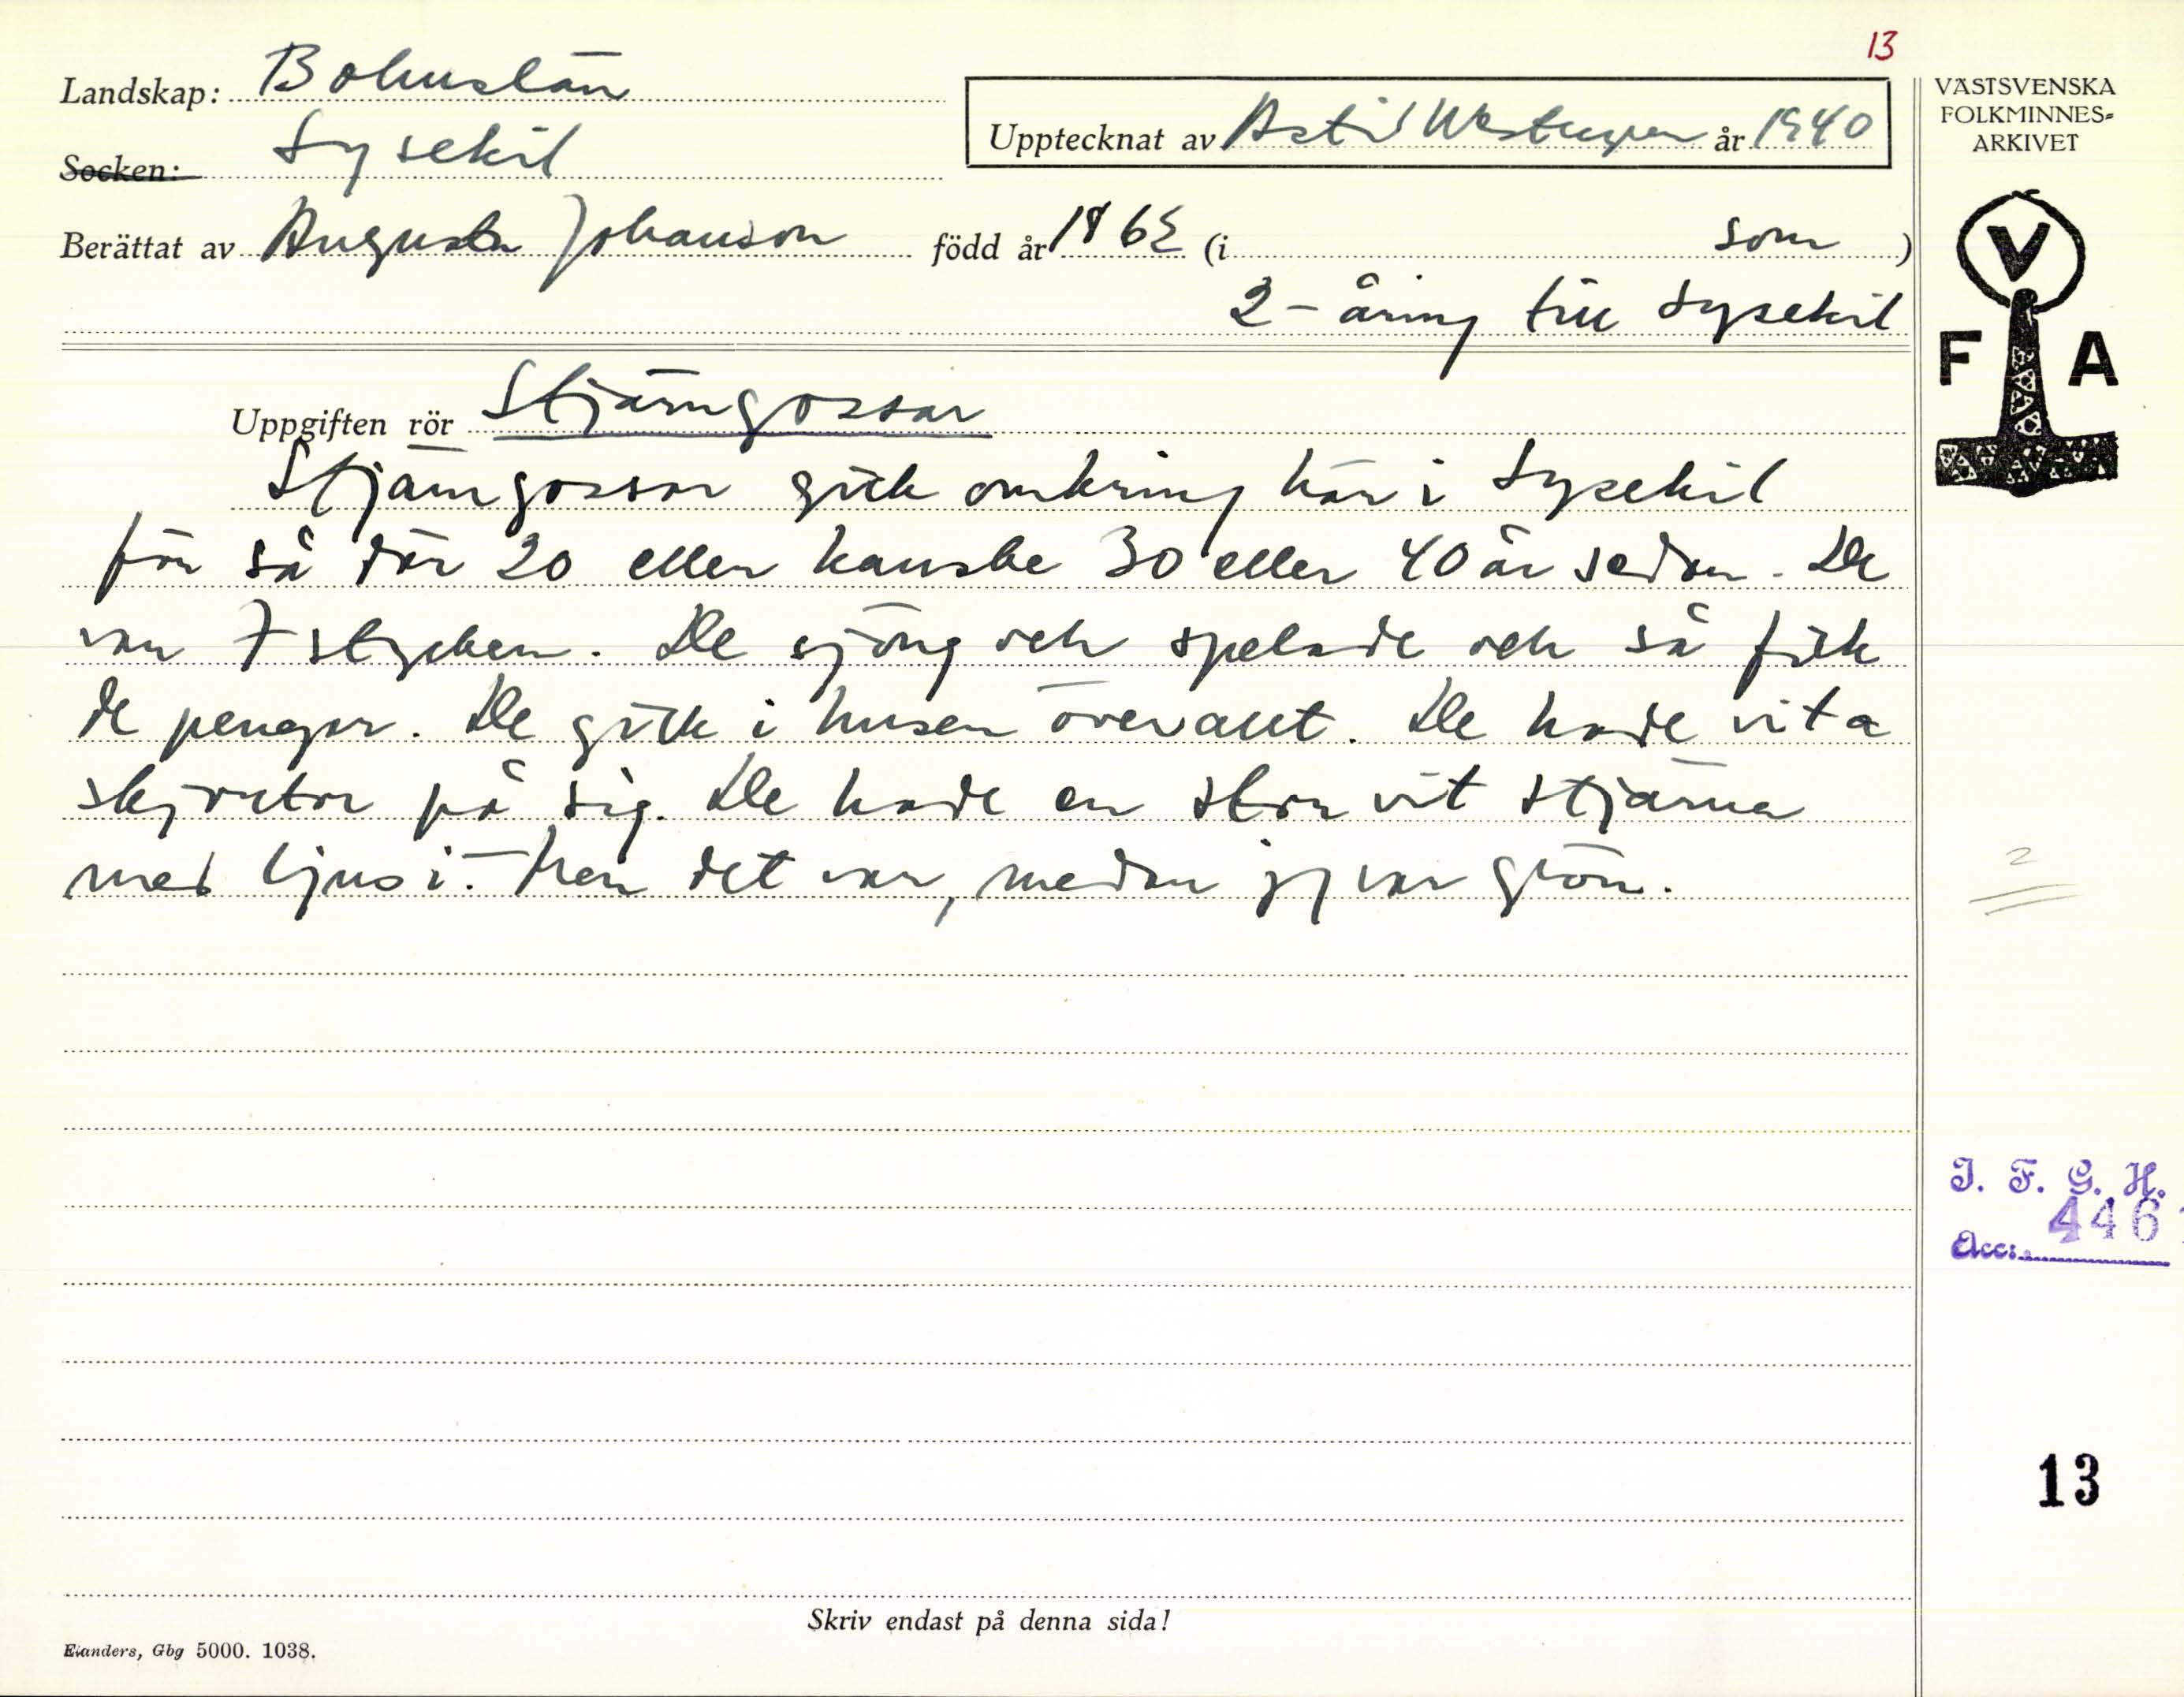 13
Landskap: Bohuslän
Socken: Lysekil
Upptecknat av Astrid Westergren år 1940
Berättat av Augusta Johanson född år 1865 (i som )
2-åring till Lysekil
Uppgiften rör Stjärngossar
Stjärngossar gick omkring här i Lysekil
för så där 20 eller kanske 30 eller 40 år sedan. De
var 7 stycken. De sjöng och spelade och så fick
de pengar. De gick i husen överallt. De hade vita
skjortor på sig. De hade en stor vit stjärna
med ljus i. Men det var, medan jag var
Skriv endast på denna sida!
Elanders, Gbg 5000. 1038.
VÄSTSVENSKA
FOLKMINNES=
ARKIVET
V
F A
2
I. F. G. H.
Acc: 446
13